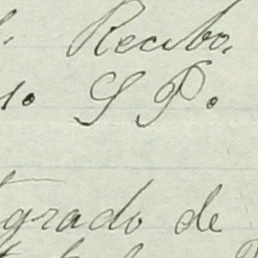 Recibo.
S P.
grado de